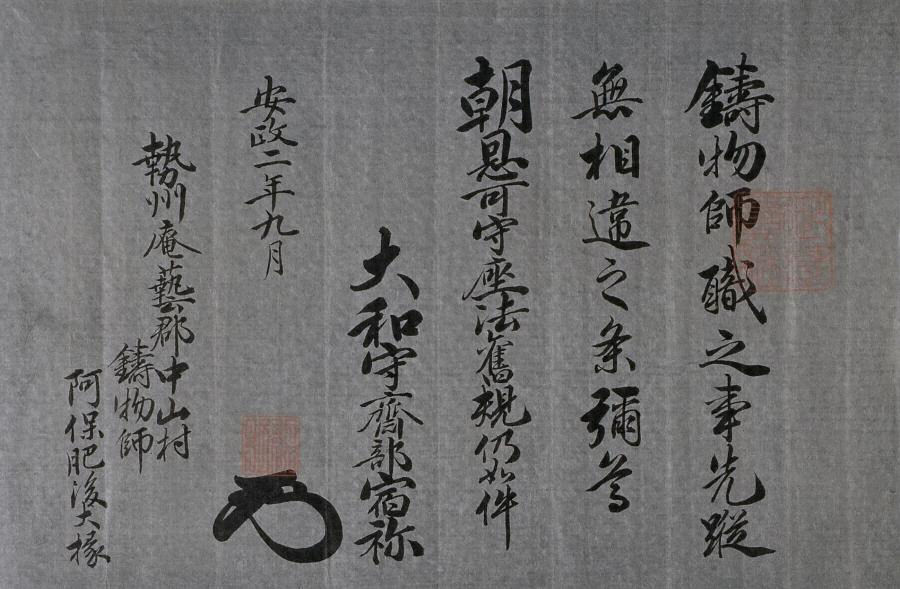 鑄物師職之事先蹤
無相違之条彌為
朝恩可守座法舊規仍如件
大和守齋部宿祢
安政二年九月
勢州庵藝郡中山村
鑄物師
阿保肥後大掾